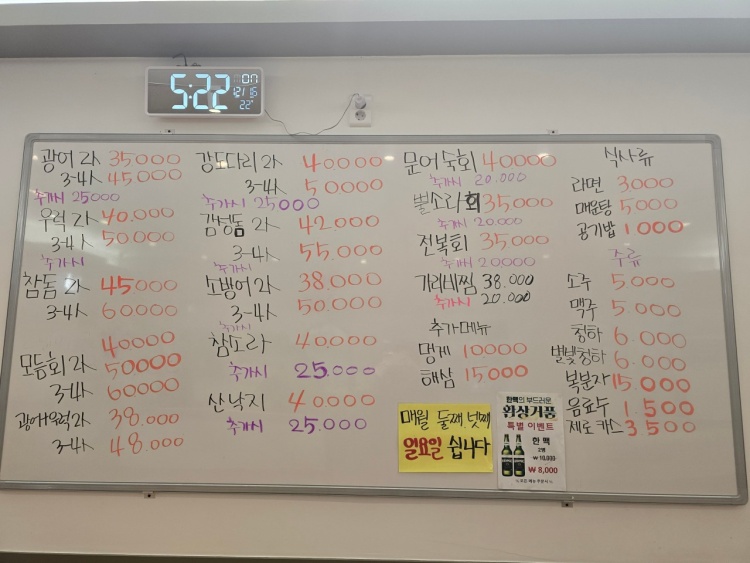 5:22 07
12/1 15
22°
광어 2人 35000
3-4人 45000
추가시 25000
우럭 2人 40.000
3-4人 50000
추가시
참돔 2人 45000
3-4人 60000
40000
모듬회 2人 50000
3-4人 60000
광어+우럭 2人 38.000
3-4人 48.000
강도다리 2人 40.000
3-4人 50000
추가시 25000
감성돔 2人 42000
3-4人 55.000
추가시
2人 38.000
3-4人 50.000
추가시
참소라 40000
추가시 25.000
산낙지 40000
추가시 25.000
문어숙회 40000
추가시 20.000
뿔소라회 35000
추가시 20.000
전복회 35000
추가시 20000
가리비찜 38.000
추가시 20.000
추가메뉴
멍게 10000
해삼 15000
매월 둘째.넷째
일요일 쉽니다
한맥의 부드러운
환상거품
특별 이벤트
한 맥
2병
₩10,000
₩8,000
식사류
라면 3000
매운탕 5000
공기밥 1000
주류
소주 5000
맥주 5.000
청하 6.000
별빛청하 6.000
복분자 15.000
음료수 1.500
제로 카스 3500